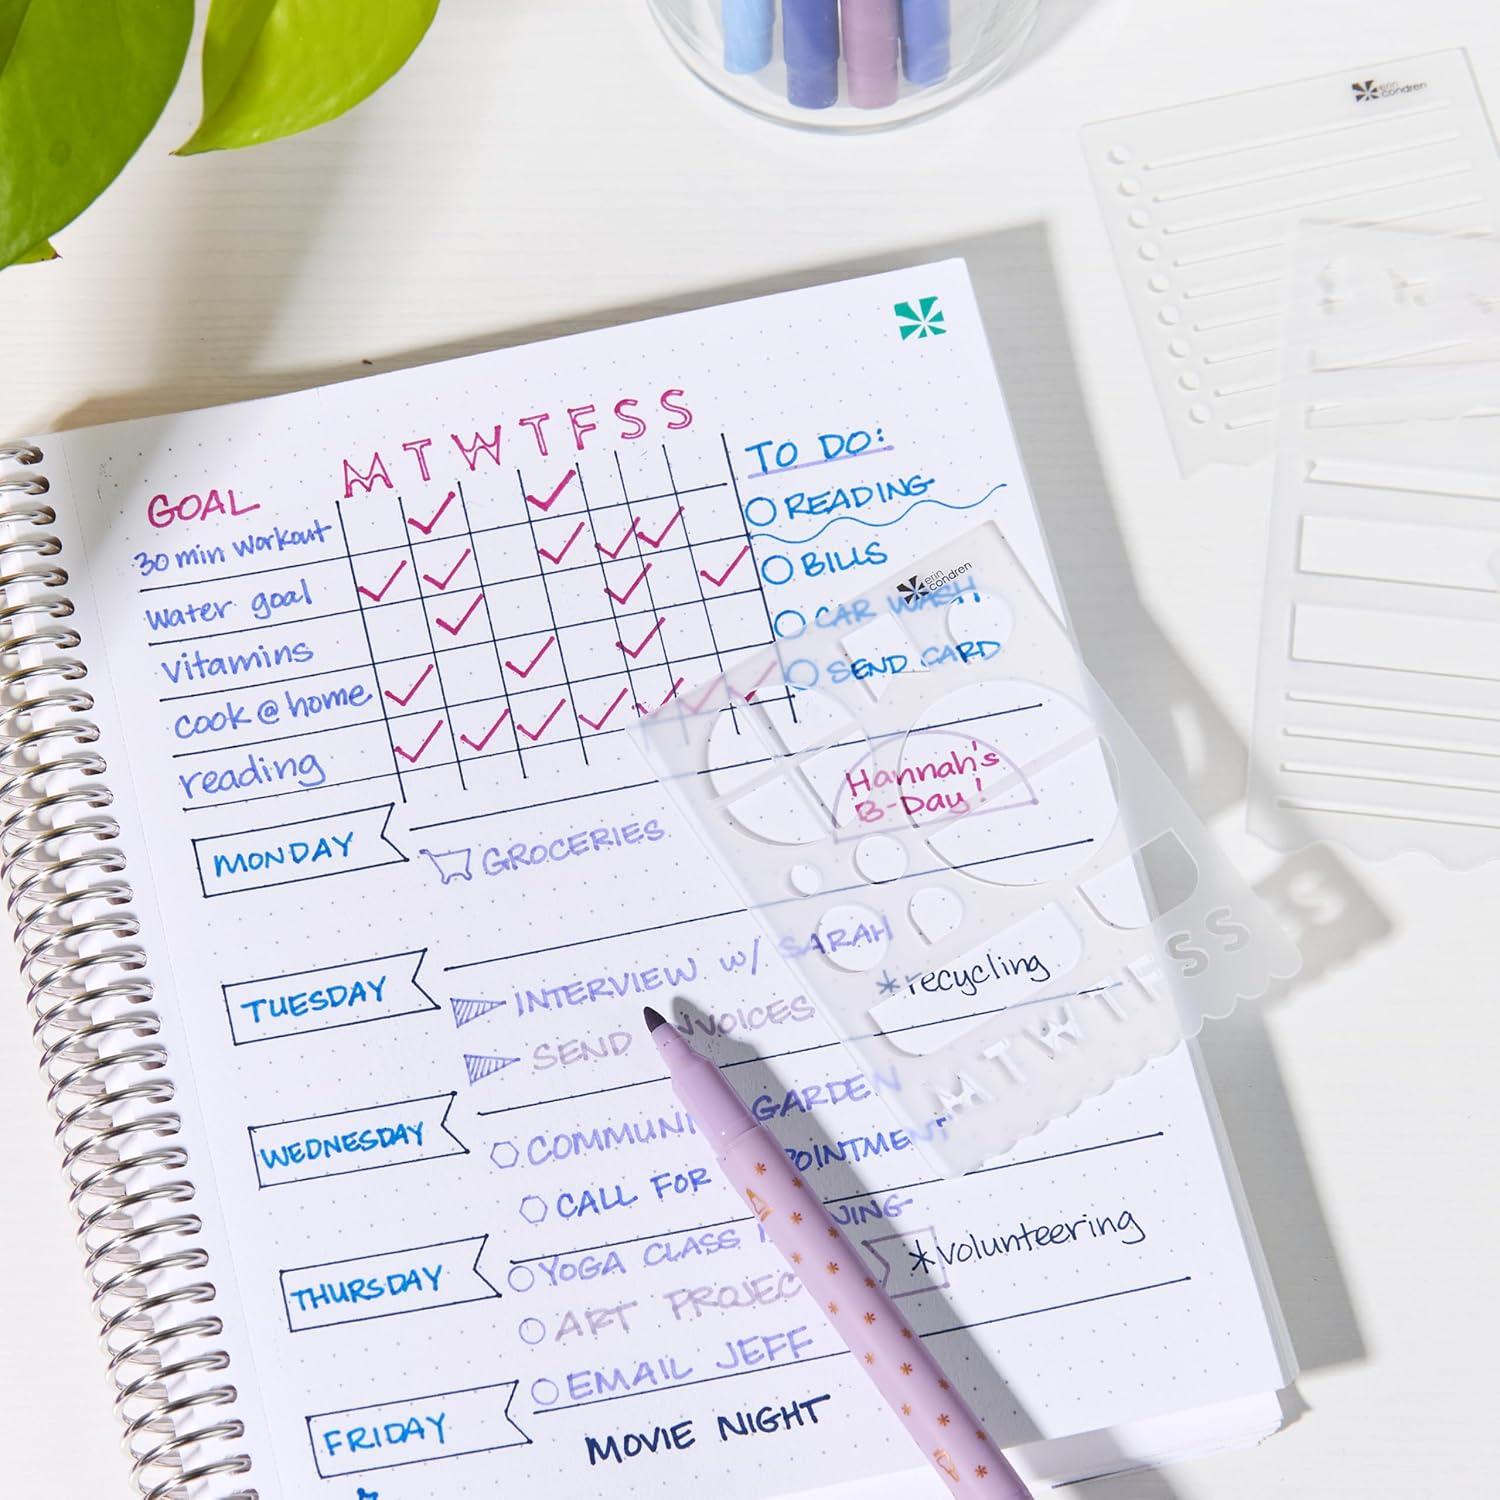 erin condren
M T W T F S S
GOAL
30 min workout
water goal
vitamins
cook @ home
reading
TO DO:
READING
BILLS
CAR WASH
SEND CARD
erin condren
Hannah's
B-Day!
MONDAY
GROCERIES
TUESDAY
INTERVIEW W/ SARAH
SEND INVOICES
*recycling
M T W T F S S
WEDNESDAY
COMMUNI GARDEN
CALL FOR POINTMENT
THURSDAY
YOGA CLASS NING
ART PROJEC
EMAIL JEFF
*volunteering
FRIDAY
MOVIE NIGHT